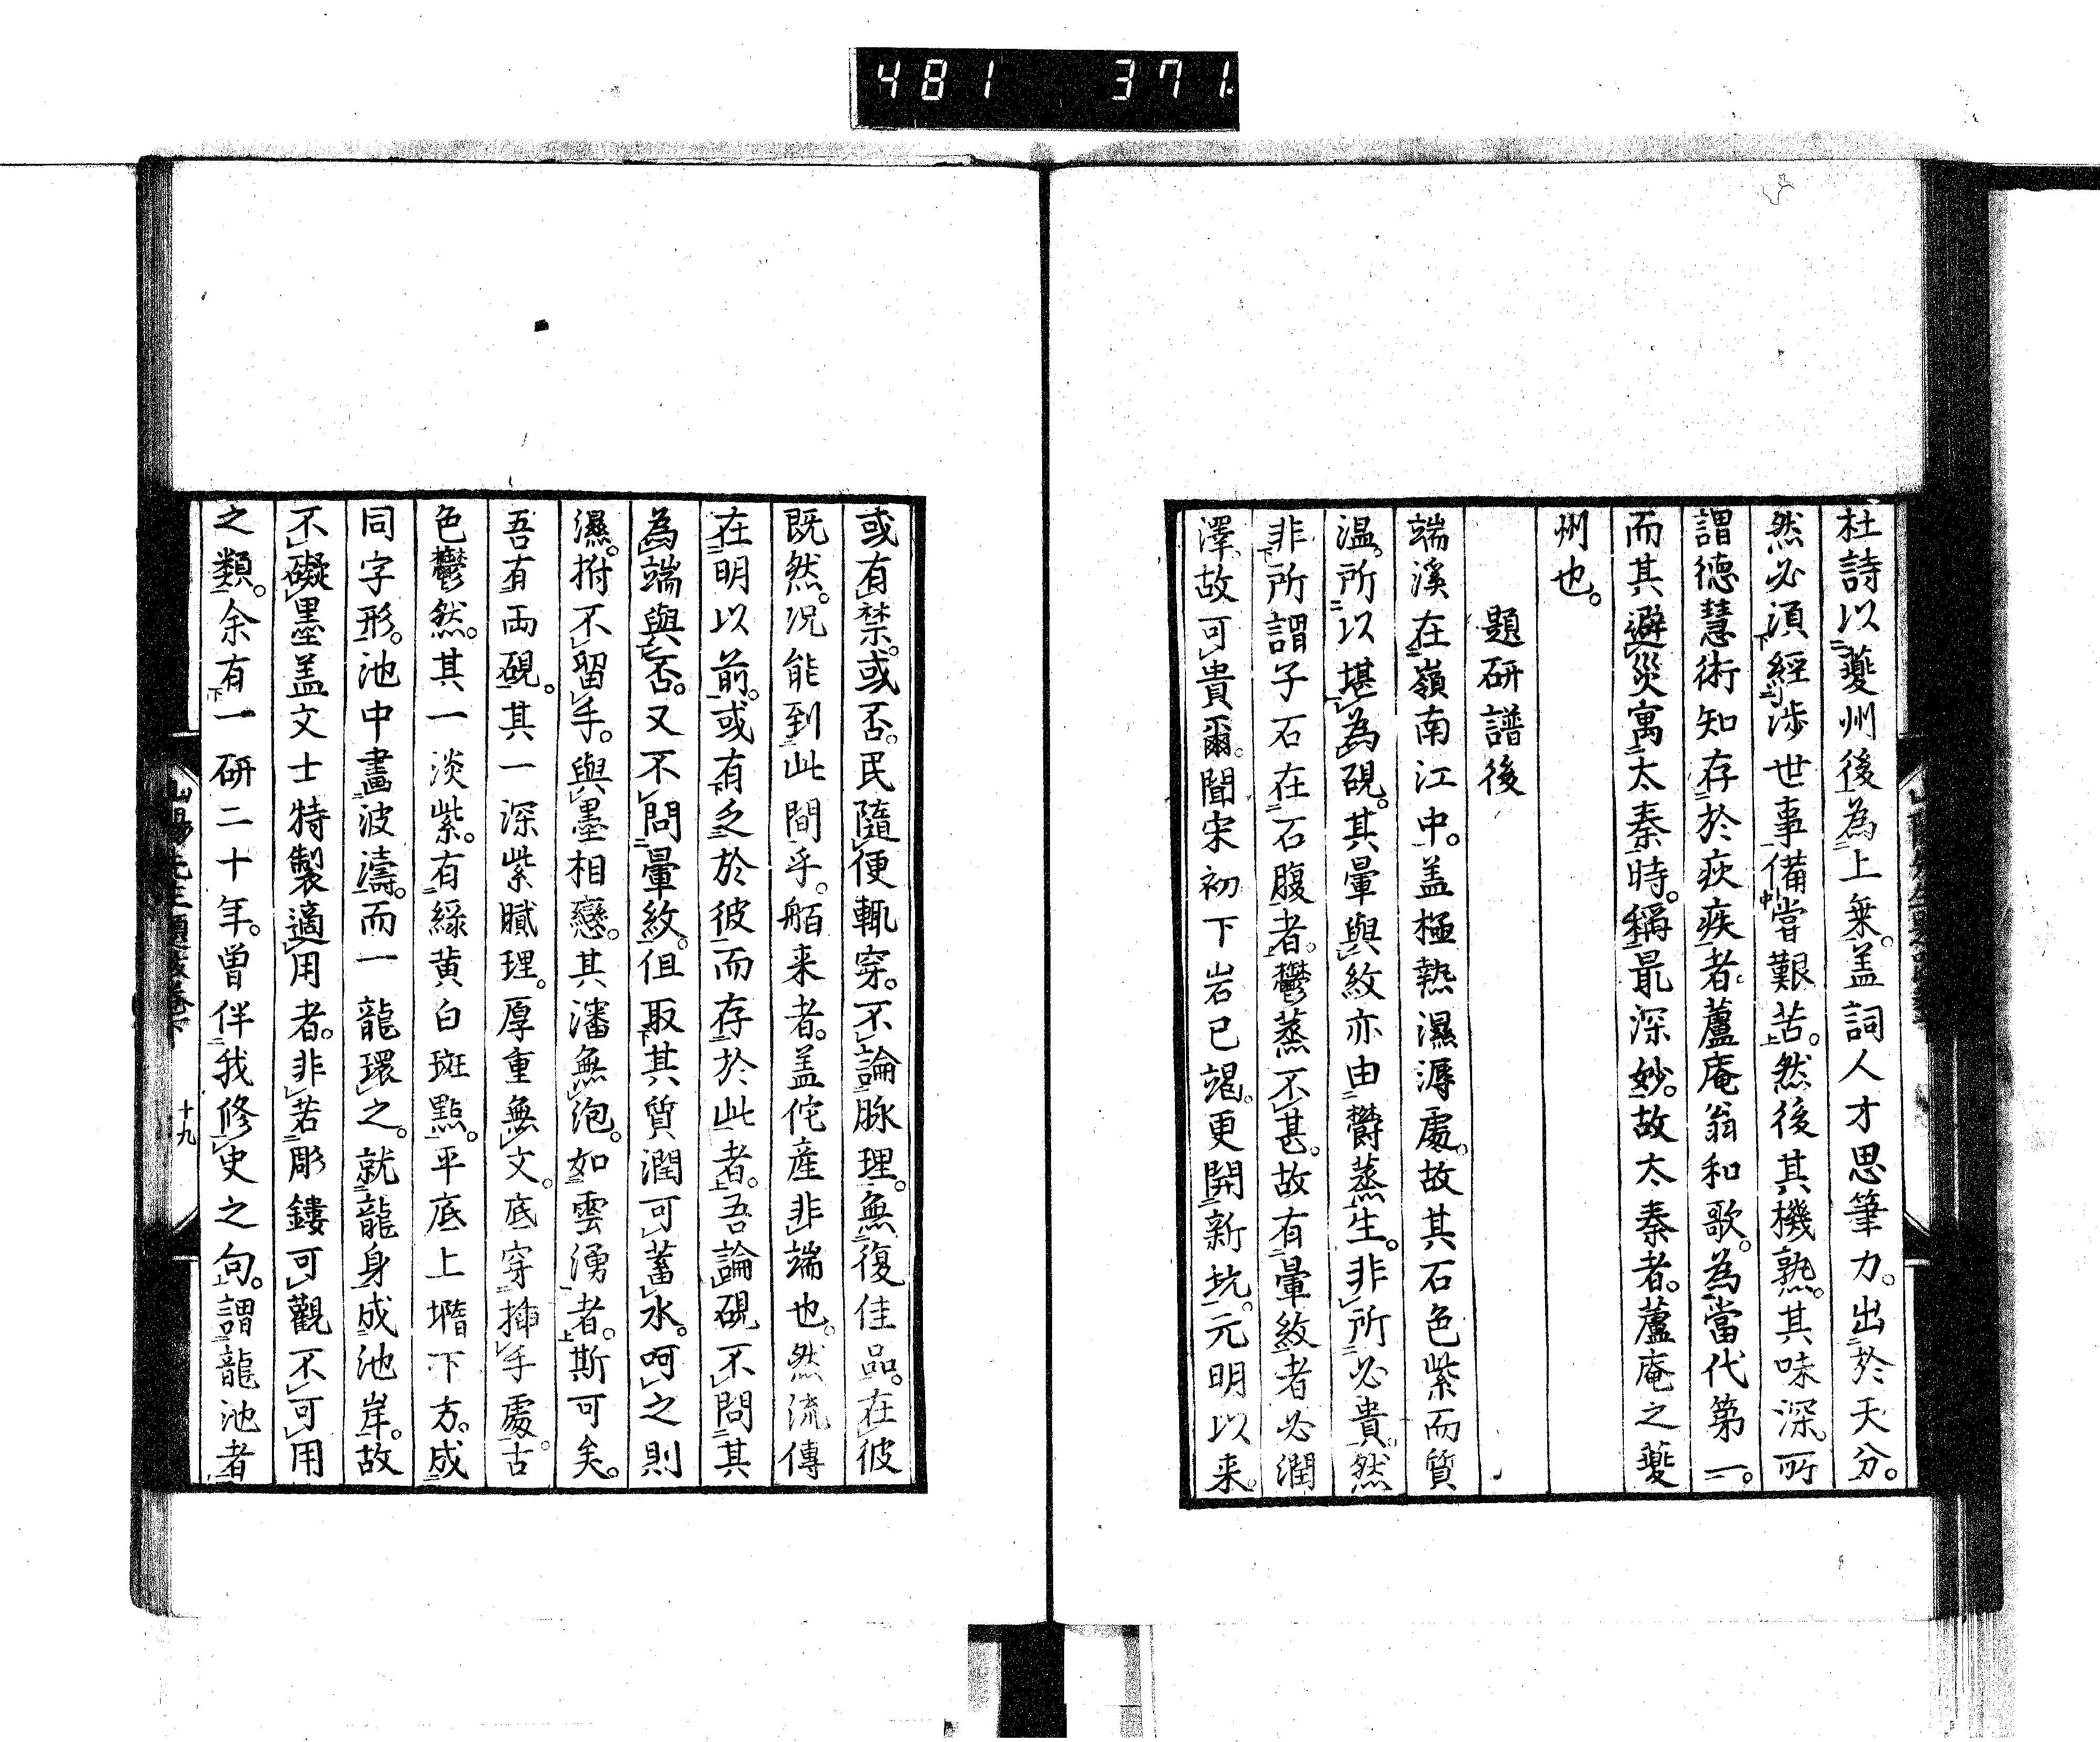 481 371
杜詩以夔州後為上乗。盖詞人才思筆力。出於天分。
然必須經渉世事備嘗艱苦。然後其機熟。其味深。所
謂徳慧術知存於疢疾者。蘆庵翁和歌。為當代第一。
而其避災寓太秦時。稱最深妙。故太秦者。蘆庵之夔
州也。
題研譜後
端溪在嶺南江中。盖極熱濕溽處。故其石色紫而質
温。所以堪為硯。其暈與紋亦由欝蒸生。非所必貴。然
非所謂子石在石腹者。欝蒸不甚。故有暈紋者必潤
澤。故可貴爾。聞宋初下岩已竭。更開新坑。元明以来。
或有禁。或否。民隨便輒穿。不論脉理。無復佳品。在彼
既然。况能到此間乎。舶来者。盖佗産非端也。然流傳
在明以前。或有乏於彼而存於此者。吾論硯不問其
為端與否。又不問暈紋。但取其質潤可蓄水。呵之則
濕。拊不留手。與墨相戀。其瀋無泡。如雲湧者。斯可矣。
吾有兩硯。其一深紫膩理。厚重無文。底穿挿手處。古
色欝然。其一淡紫。有緑黄白斑點。平底上橢下方。成
同字形。池中畫波濤。而一龍環之。就龍身成池岸。故
不礙墨盖文士特製適用者。非若彫鏤可觀不可用
之類。余有一研二十年。曽伴我修史之句。謂龍池者
十九